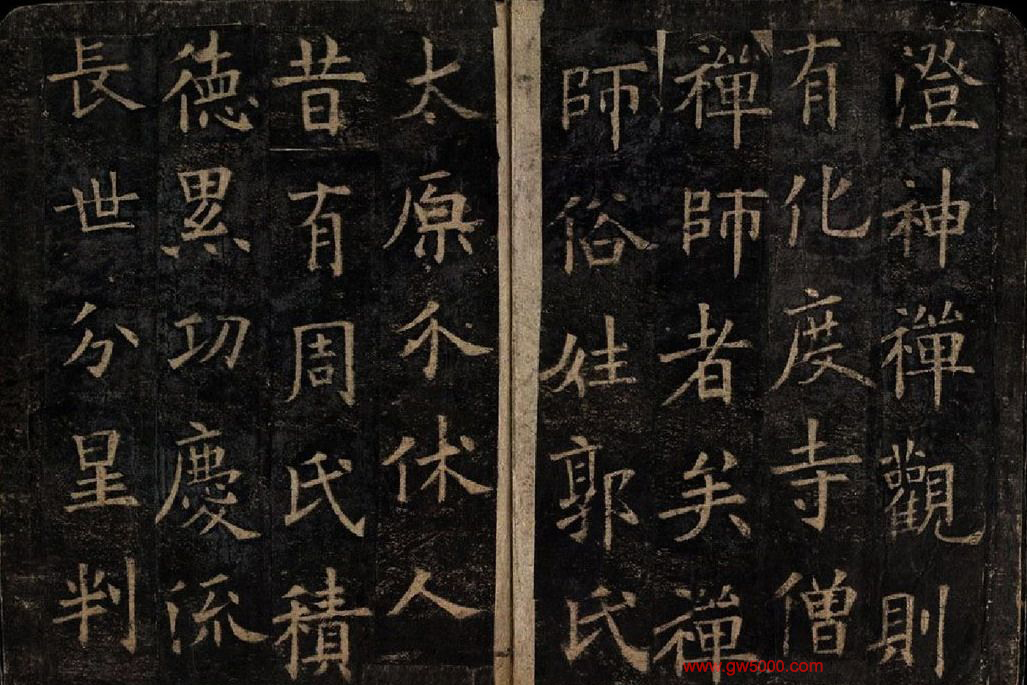 澄神禪觀則
有化度寺僧
禪師者矣禪
師俗姓郭氏
太原介休人
昔有周氏積
德累功慶流
長世分星判
www.gw5000.com